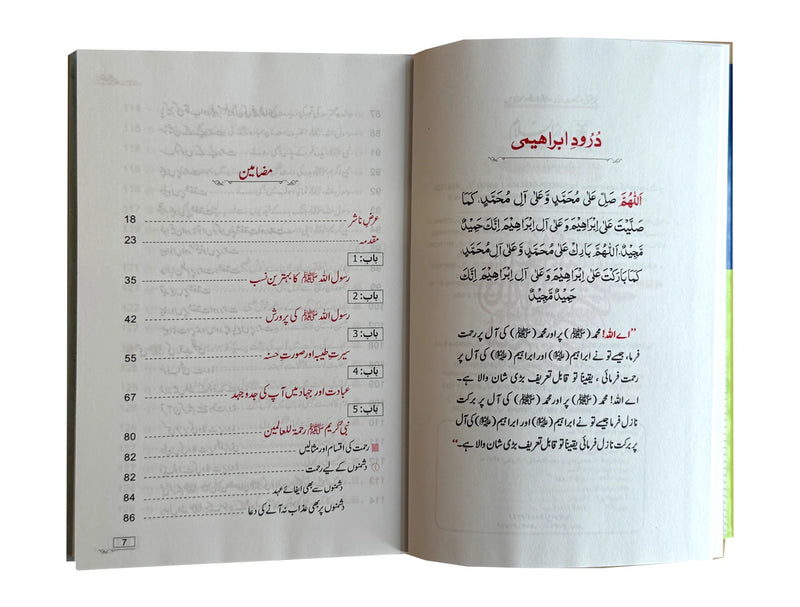 دُرُودِ ابراہیمی
اَللّٰهُمَّ صَلِّ عَلٰى مُحَمَّدٍ وَّعَلٰى اٰلِ مُحَمَّدٍ، كَمَا
صَلَّيْتَ عَلٰى اِبْرَاهِيْمَ وَعَلٰى اٰلِ اِبْرَاهِيْمَ اِنَّكَ حَمِيْدٌ
مَّجِيْدٌ، اَللّٰهُمَّ بَارِكْ عَلٰى مُحَمَّدٍ وَّعَلٰى اٰلِ مُحَمَّدٍ،
كَمَا بَارَكْتَ عَلٰى اِبْرَاهِيْمَ وَعَلٰى اٰلِ اِبْرَاهِيْمَ اِنَّكَ
حَمِيْدٌ مَّجِيْدٌ
"اے اللہ! محمد (ﷺ) پر اور محمد (ﷺ) کی آل پر رحمت
فرما، جیسے تو نے ابراہیم (علیہ السلام) اور ابراہیم (علیہ السلام) کی آل پر
رحمت فرمائی، یقیناً تو قابل تعریف بڑی شان والا ہے۔
اے اللہ! محمد (ﷺ) پر اور محمد (ﷺ) کی آل پر برکت
نازل فرما جیسے تو نے ابراہیم (علیہ السلام) اور ابراہیم (علیہ السلام) کی آل
پر برکت نازل فرمائی یقیناً تو قابل تعریف بڑی شان والا ہے۔"
مضامین
عرضِ ناشر 18
مقدمہ 23
باب: 1
رسول اللہ ﷺ کا بہترین نسب 35
باب: 2
رسول اللہ ﷺ کی پرورش 42
باب: 3
سیرتِ طیبہ اور صورتِ حسنہ 55
باب: 4
عبادت اور جہاد میں آپ کی جدوجہد 67
باب: 5
نبی کریم ﷺ رحمۃ للعالمین 80
رحمت کی اقسام اور مثالیں 82
① دشمنوں کے لیے رحمت 82
دشمنوں سے بھی ایفائے عہد 84
دشمنوں پر بھی عذاب نہ آنے کی دعا 86
7